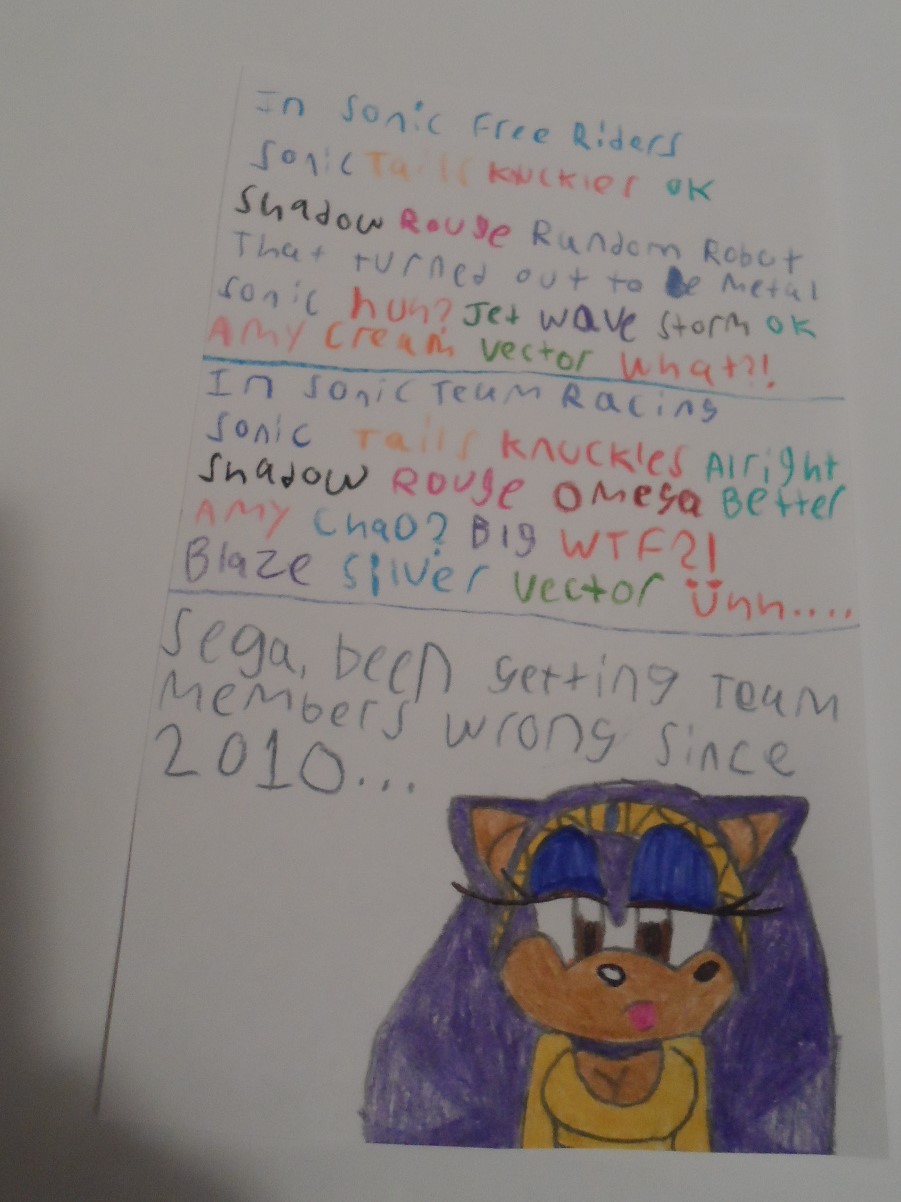 In Sonic Free Riders
Sonic Tails Knuckles OK
Shadow Rouge Rundom Robot
That turned out to be Metal
Sonic huh? Jet Wave Storm OK
Amy Cream Vector What?!
In Sonic Team Racing
Sonic Tails Knuckles Alright
Shadow Rouge Omega Better
Amy Chao? Big WTF?!
Blaze Silver Vector Uhh....
Sega, been getting Team
Members wrong since
2010...